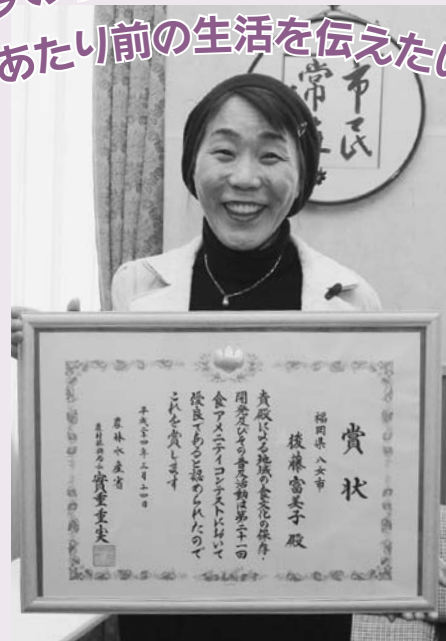 あたり前の生活を伝えたい
市民
賞状
福岡県 八女市
後藤富美子 殿
貴殿による地域の食文化の保存・
開発及びその普及活動は第二十一回
食アメニティコンテストにおいて
優良であると認められたので
これを賞します
平成二十四年三月十四日
農林水産省
農村振興局長 實重重実